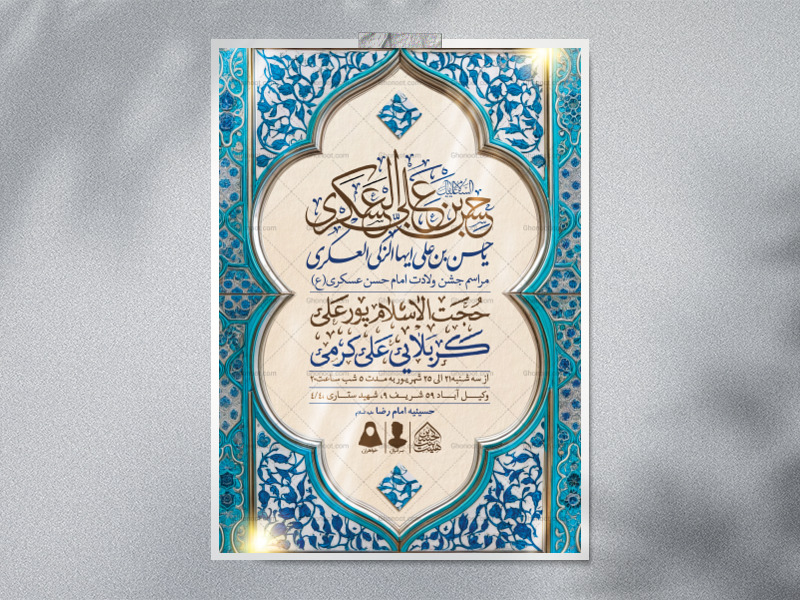 السلام علیک
حسن بن علی العسکری
یا حسن بن علی ایها الزکی العسکری
مراسم جشن ولادت امام حسن عسکری(ع)
حجت الاسلام پور علی
کربلایی علی کرمی
از سه شنبه ۲۱ الی ۲۵ شهریور به مدت ۵ شب ساعت ۲۰
وکیل آباد ۵۹ شریف ۹، شهید ستاری ۴/۴۰
حسینیه امام رضا علیه السلام
برادران
خواهران
Ghonoot.com